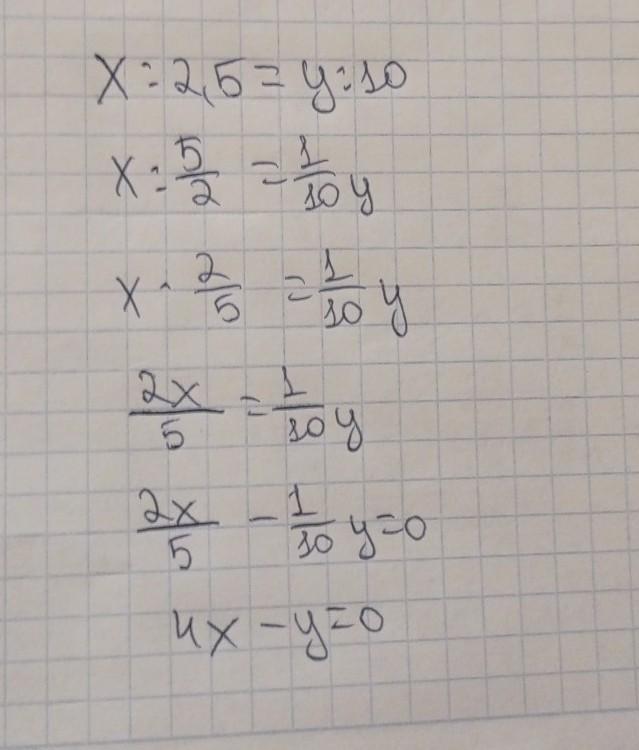 x : 2,5 = y : 10
x : 5/2 = 1/10 y
x · 2/5 = 1/10 y
2x/5 = 1/10 y
2x/5 - 1/10 y = 0
4x - y = 0